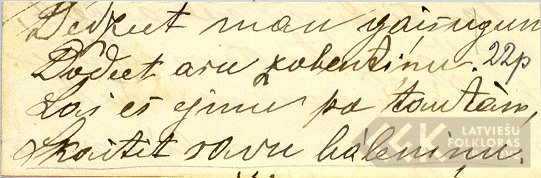 Dedzeet man gaisugun
Dodeet asu zobentiņu. 22p
Lai es ejmu pa tautām,
Skaitit savu bāleniņu.
LATVIEŠU
FOLKLORAS